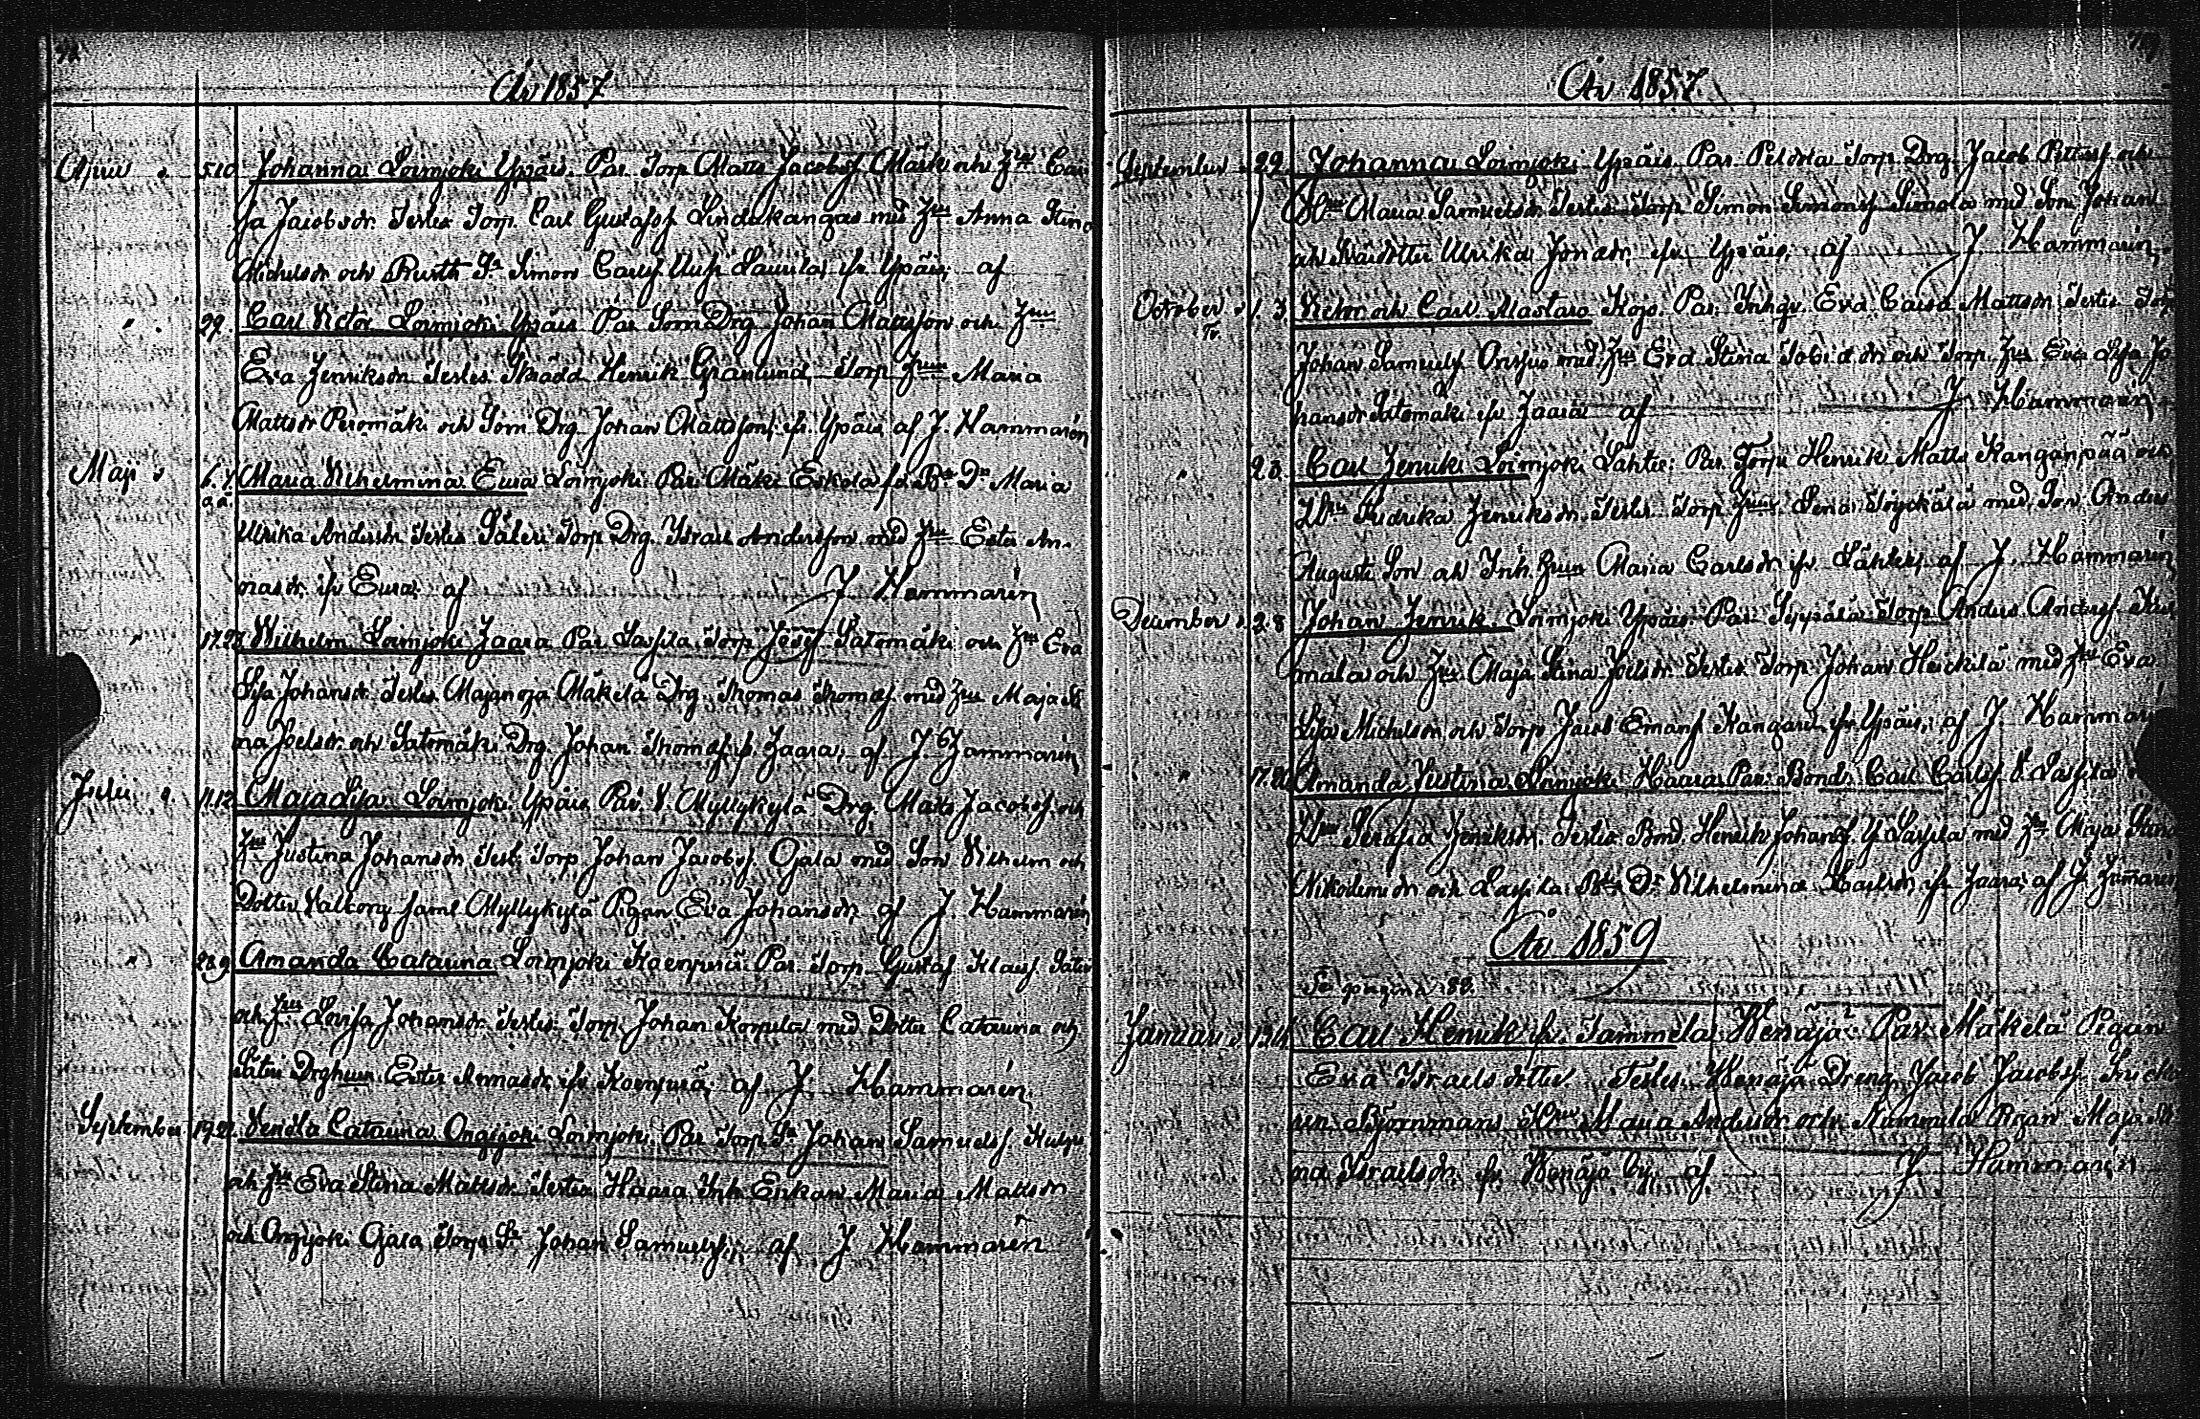 År 1857
April 5.10. Johanna Loimjoki Ypäis. Par. Torp. Matts Jacobsf. Märk och Hru Cai
sa Jacobsdr. Testes Torp. Carl Gustafsf. Lindukangas med Hru Anna Stina
Michelsdr och Rusth. Sn Simon Carlsf. Uusi Laurila, ifr. Ypäis, af
" 29. Carl Victor Loimjoki Ypäis Par. Torn Drg Johan Mattsson och Hru
Eva Henriksdr Testes Skrädd. Henrik Granlund, Torp. Hru Maria
Mattsdr Peromäki och Torn Drg. Johan Mattsson, ifr. Ypäis, af J. Hammarén
Maji 6.7. Maria Vilhelmina Eura Loimjoki Par. Mäki Eskola fd. Bde Dr Maria
Ulrika Andersdr Testes Säteri Torp Drg. Israel Andersson med Hru Ester An-
nasdr. ifr Eura, af J. Hammarén
" 17.23. Wilhelm Loimjoki Haara Par. Lassila Torp Josef Satomäki och Hru Eva
Lisa Johansdr. Testes Majanoja Mäkelä Drg. Thomas Thomasf. med Hru Maja Sti
na Joelsdr. och Satomäki Drg. Johan Thomasf. fr. Haara, af J. Hammarén
Julii 11.12. Maja Lisa Loimjoki Ypäis Par. V. Myllykylä Drg. Matts Jacobsf. och
Hru Justina Johansdr Test. Torp. Johan Jacobsf. Ojala med Son Vilhelm och
Dotter Valborg saml. Myllykylä Pigan Eva Johansdr. af J. Hammarén
" 28.9. Amanda Catarina Loimjoki Koenperä Par. Torp Gustaf Klasf. Säteri
och Hru Lovisa Johansdr. Testes Torp. Johan Korpela med Dotter Catarina och
Säteri Drghun. Ester Annasdr, ifr Koenperä, af J. Hammarén.
September 19.22. Vendla Catarina Ongijoki Loimjoki Par. Torp Sn Johan Samuelsf.
och Hru Eva Stina Mattsdr. Testes Haara Inh. Enkan Maria Mattsdr
och Ongijoki Ojala Torp Sn Johan Samuelsf., af J. Hammarén
År 1857.
September 29. Johanna Loimjoki Ypäis. Par. Peldola Torp. Drg. Jacob och
Hru Maria Samuelsdr Testes Torp Simon Simonsf. Simola med Son Johan
och Ulrika Jonasdr, ifr Ypäis, af J. Hammarén.
October 1.3. Victor och Carl Mastaro Kojo. Par. Inhgr. Eva Caisa Mattsdr. Testes Torp
Johan Samuelsf. med Hru Eva Stina dr och Torp. Hru Eva Lisa Jo
hansdr Satomäki ifr. Haara af J. Hammarén
" 2.3. Carl Henrik Loimjoki Lähte: Par. Torp. Henrik Matts Kanganpää och
Hru Fredrika Henriksdr. Testes Torp Hru Lena Töyckälä med Son Anders
August Son och Inh. Hrun Maria Carlsdr ifr. Lähte, af J. Hammarén
December 2.8 Johan Henrik Loimjoki Ypäis. Par. Torp. Anders Andersf.
mala och Hru Maja Stina Joelsdr. Testes Torp. Johan Heickilä med Hru Eva
Lisa Michelsdr och Torp Jacob Emanf. Kangare ifr Ypäis, af J. Hammarén
" 17.20. Amanda Justina Loimjoki Haara Par. Bond. Carl Carlsf. V. Lassila
Hru Serafia Henriksdr. Testes Bond. Henrik Johansf. Y. Lassila med Hru Maja Stina
Nikodemidr och Lassila Bde Dr Vilhelmina Karlsdr ifr Haara, af J. Hammarén
År 1859
Se pagina 88.
Januari Carl Henrik ifr. Tammela Wenäjä. Par. Mäkelä Pigan
Eva Israelsdotter. Testes. Wenäjä Dreng Jacob Jacobsf.
Björnmans Hru Maria Andersdr och Nummela Pigan Maja Sti
na Israelsdr. ifr. Wenäjä by, af J. Hammarén